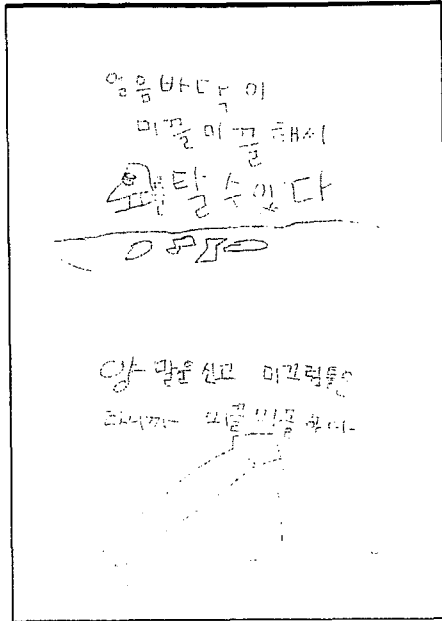 얼음바닥이
미끌미끌해서
탈수있다
양말을신고 미끄럼틀을
타니까 미끌미끌하다